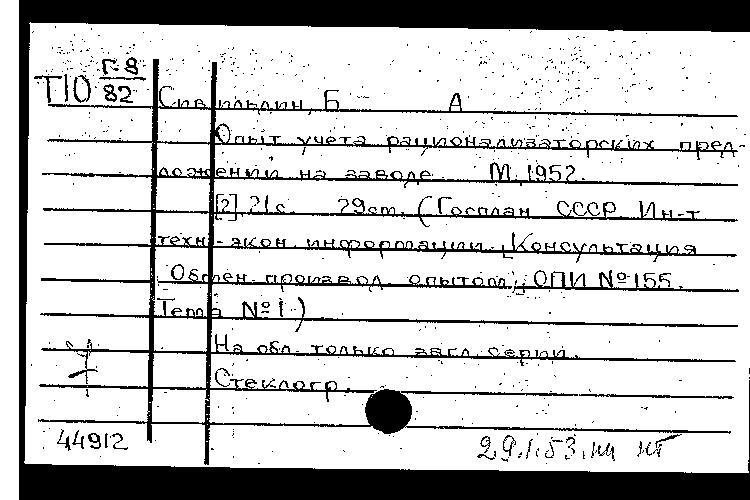 Т10 Г-8
82
Сивильдин, Б А
Опыт учета рационализаторских пред-
ложений на заводе. М, 1952.
[2], 21с. 29см. (Госплан СССР. Ин-т
техн-экон. информации. [Консультация
Обмен. производ. опытом]; ОПИ №155.
Тема №1)
На обл. только загл. серии.
Стеклогр.
44912
29.1.53.